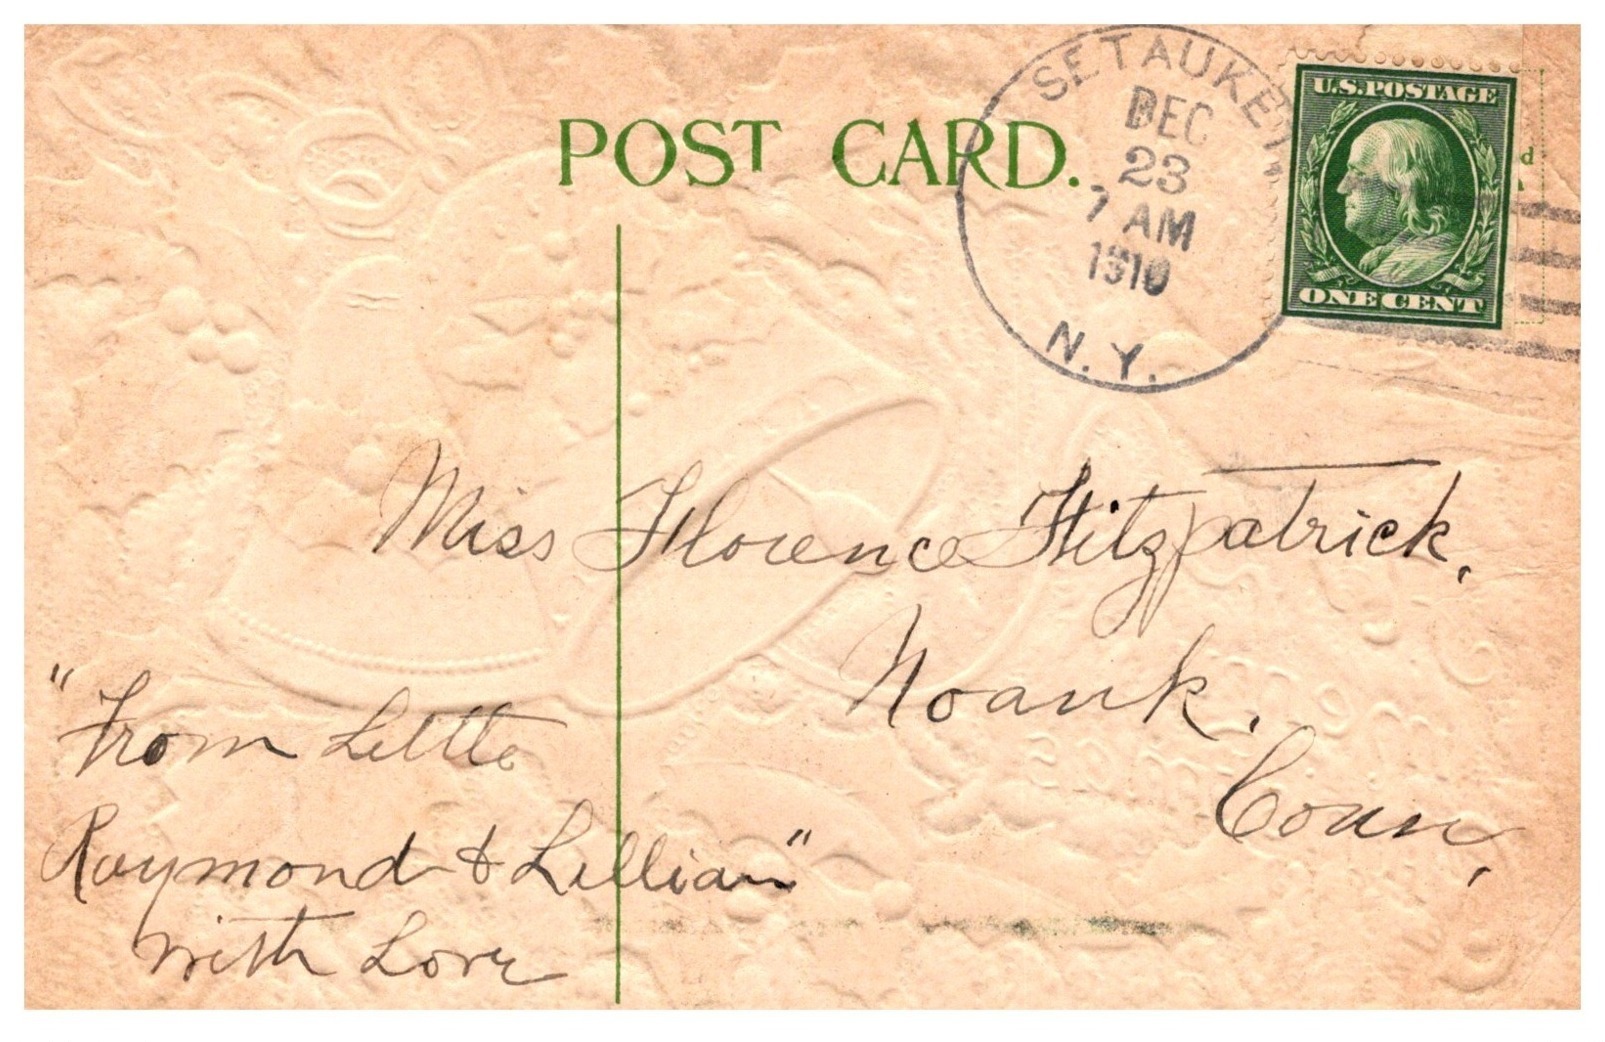 POST CARD.
SETAUKET
DEC
23
7 AM
1910
N.Y.
U.S.POSTAGE
ONE CENT
Miss Florence Fitzpatrick.
Noank.
Conn,
"From Little
Raymond & Lillian"
with Love